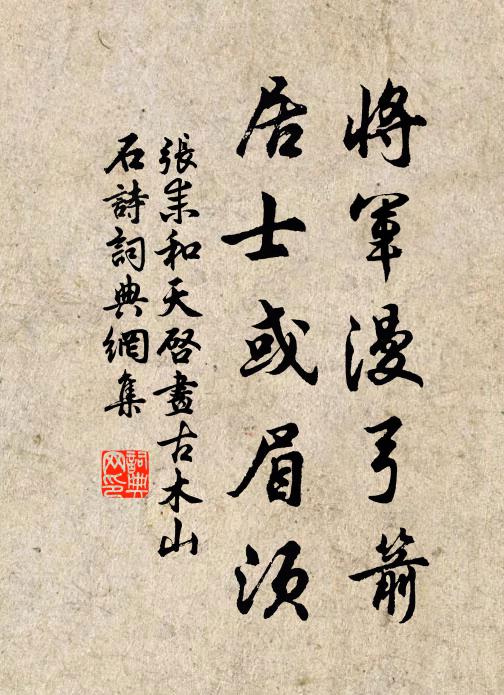 將軍漫弓箭
居士或眉須
張耒和天啓畫古木山
石詩詞典網集
詞典網印